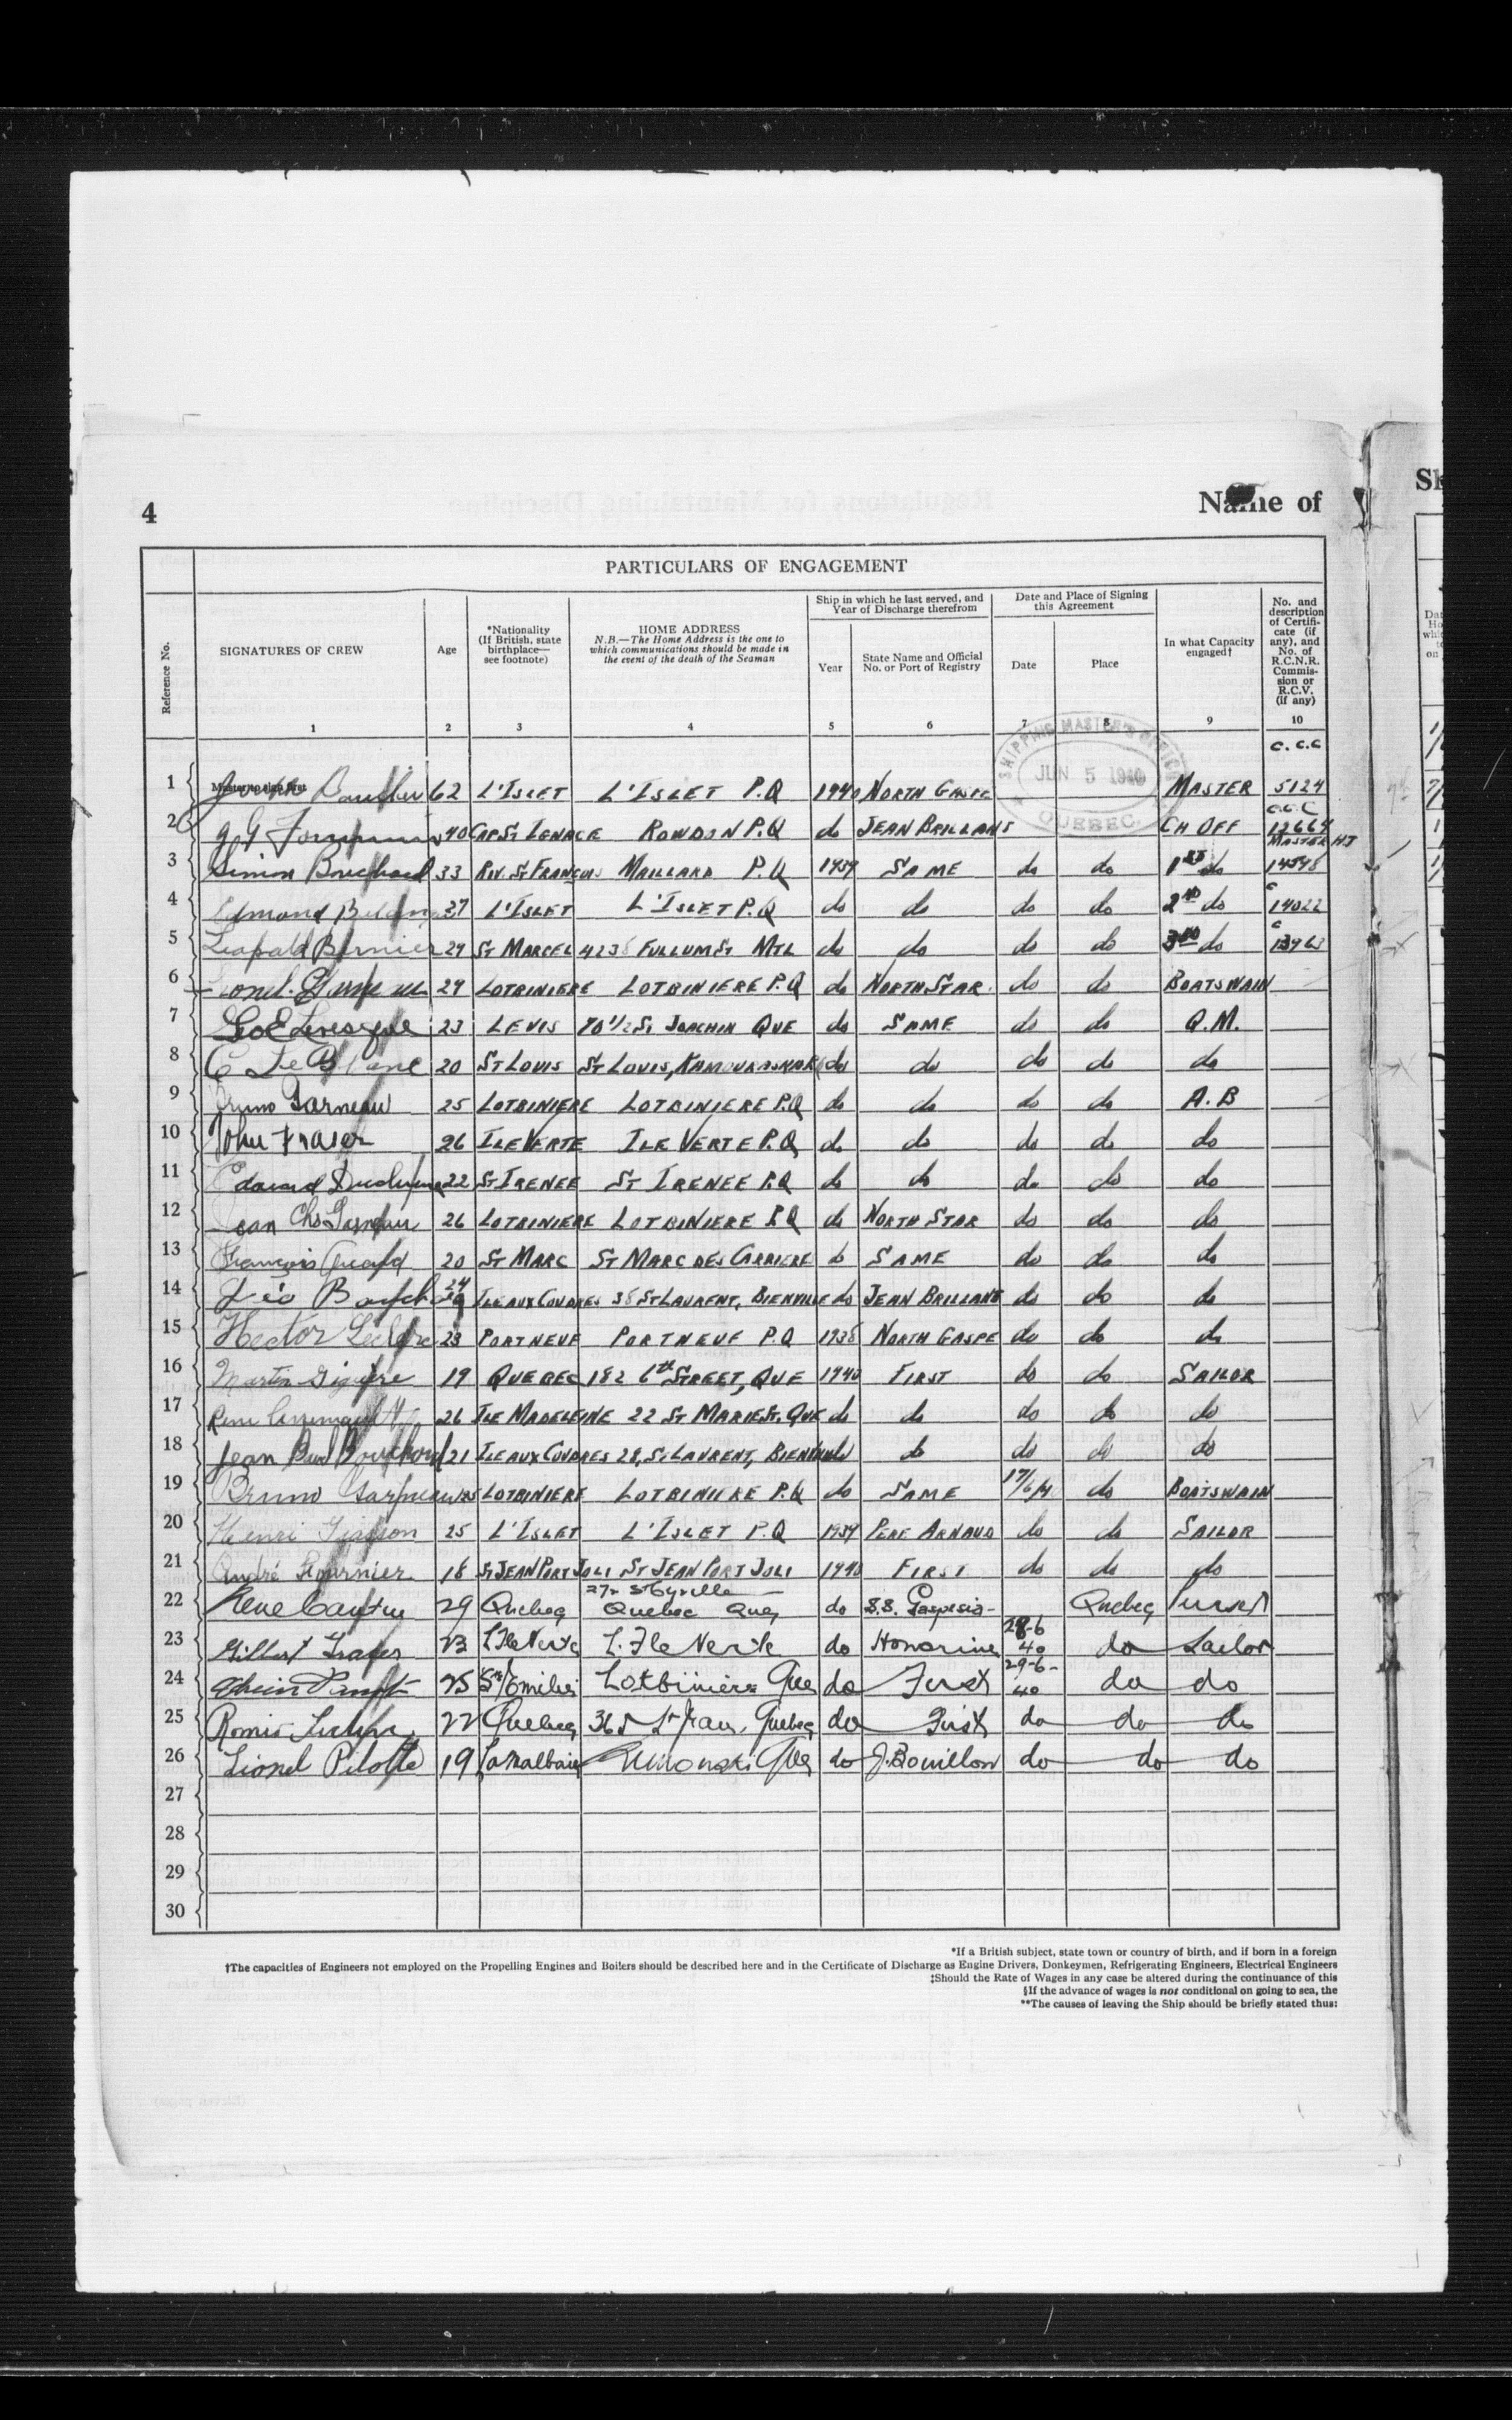 4
Name of
PARTICULARS OF ENGAGEMENT
Reference No.
SIGNATURES OF CREW
Age
*Nationality (If British, state birthplace— see footnote)
HOME ADDRESS
N.B.—The Home Address is the one to which communications should be made in the event of the death of the Seaman
Ship in which he last served, and Year of Discharge therefrom
Year
State Name and Official No. or Port of Registry
Date and Place of Signing this Agreement
Date
Place
In what Capacity engaged†
No. and description of Certificate (if any), and No. of R.C.N.R. Commission or R.C.V. (if any)
1 2 3 4 5 6 7 8 9 10
SHIPPING MASTER'S OFFICE
JUN 5 1940
QUEBEC.
C.C.C
1 62 L'ISLET L'ISLET P.Q 1940 NORTH GASPE MASTER 5124
C.C.C
2 40 CAP ST IGNACE P.Q do JEAN BRILLANT CH OFF 12664
MASTER HT
3 Simon Bouchard 33 RIV. ST FRANCOIS MAILLARD P.Q 1939 SAME do do 1ST do 14548
4 Edmond 27 L'ISLET L'ISLET P.Q do do do do 2ND do C 14022
5 Leopold Bernier 29 ST MARCEL 4238 FULLUM ST MTL do do do do 3RD do C 13963
6 29 LOTBINIERE LOTBINIERE P.Q do NORTH STAR do do BOATSWAIN
7 Geo E Levesque 23 LEVIS 70 1/2 ST JOACHIN QUE do SAME do do Q.M.
8 C LeBlanc 20 ST LOUIS ST LOUIS, KAMOURASKA do do do do do
9 Bruno Garneau 25 LOTBINIERE LOTBINIERE P.Q do do do do A.B
10 John Fraser 26 ILE VERTE ILE VERTE P.Q do do do do do
11 Edouard 22 ST IRENEE ST IRENEE P.Q do do do do do
12 Jean Chs Garneau 26 LOTBINIERE LOTBINIERE P.Q do NORTH STAR do do do
13 François 20 ST MARC ST MARC DES CARRIERE do SAME do do do
14 Léo 24 ILE AUX COUDRES 38 ST LAURENT, BIENVILLE do JEAN BRILLANT do do do
15 Hector Leclerc 23 PORTNEUF PORTNEUF P.Q 1938 NORTH GASPE do do do
16 Martin Giguère 19 QUEBEC 182 6th STREET, QUE 1940 FIRST do do SAILOR
17 26 ILE MADELEINE 22 ST MARIE ST. QUE do do do do do
18 Jean Paul Bouchard 21 ILE AUX COUDRES 28, ST LAURENT, BIENVILLE do do do do do
19 Bruno Garneau 25 LOTBINIERE LOTBINIERE P.Q do SAME 17/6/40 do BOATSWAIN
20 Henri Giasson 25 L'ISLET L'ISLET P.Q 1939 PERE ARNAUD do do SAILOR
21 André Fournier 18 ST JEAN PORT JOLI ST JEAN PORT JOLI 1940 FIRST do do do
22 Rene Cantin 29 Quebec 272 St Cyrille Quebec Que do S.S. Gaspesia Quebec Purser
23 Gilbert Fraser 23 L'Ile Verte L'Ile Verte do Honorine 28-6 40 do Sailor
24 25 St Emilie Lotbiniere Que do First 29-6-40 do do
25 22 Quebec 365 St Jean, Quebec do First do do do
26 Lionel Pilotte 19 Lamalbaie Rimouski Que do J. Bouillon do do do
27
28
29
30
*If a British subject, state town or country of birth, and if born in a foreign
†The capacities of Engineers not employed on the Propelling Engines and Boilers should be described here and in the Certificate of Discharge as Engine Drivers, Donkeymen, Refrigerating Engineers, Electrical Engineers
‡Should the Rate of Wages in any case be altered during the continuance of this
§If the advance of wages is not conditional on going to sea, the
**The causes of leaving the Ship should be briefly stated thus: